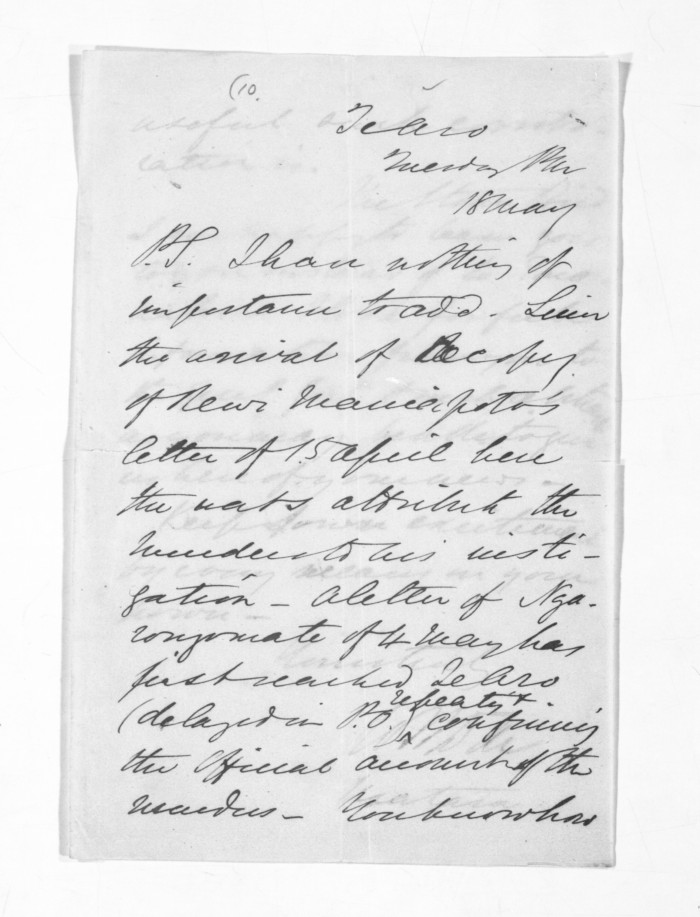 (10.
Te Aro
Tuesday PM
18 May
P.S. I have nothing of
importance to add. Since
the arrival of a copy
of Rewi Maniapoto's
letter of 15 April here
the nats attribute the
murders to his insti-
gation - A letter of Nga-
rongomate of 4 May has
just reached Te Aro
(delayed in P.O.) repeatg & confirming
the official account of the
murders - You know how